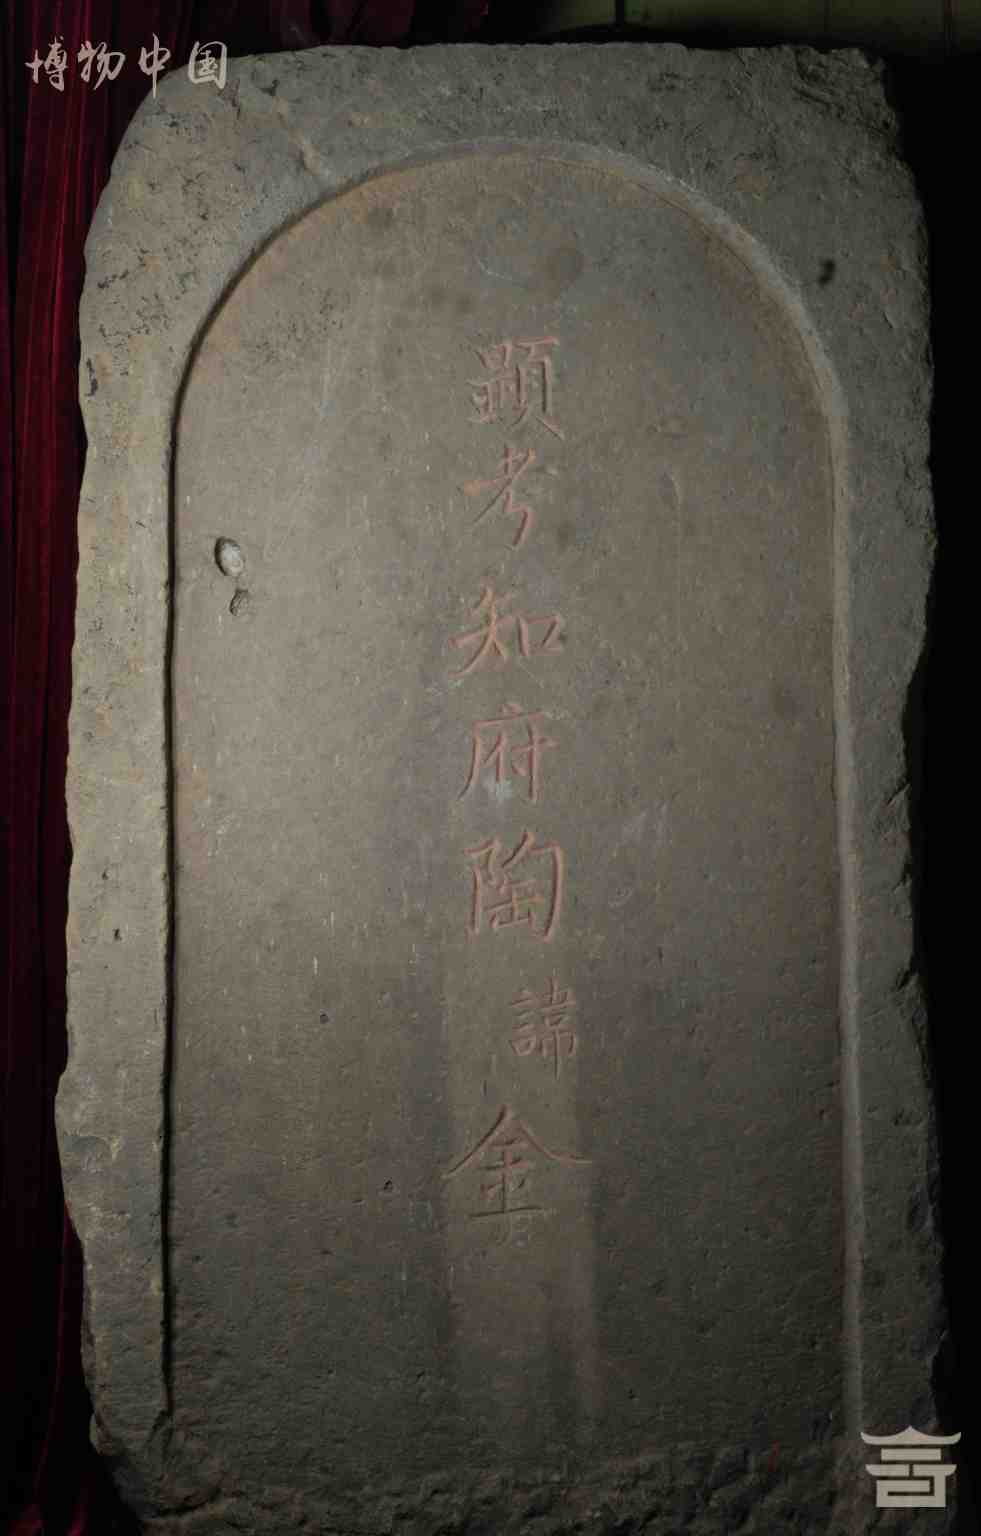 博物中国
顕考知府陶諱金